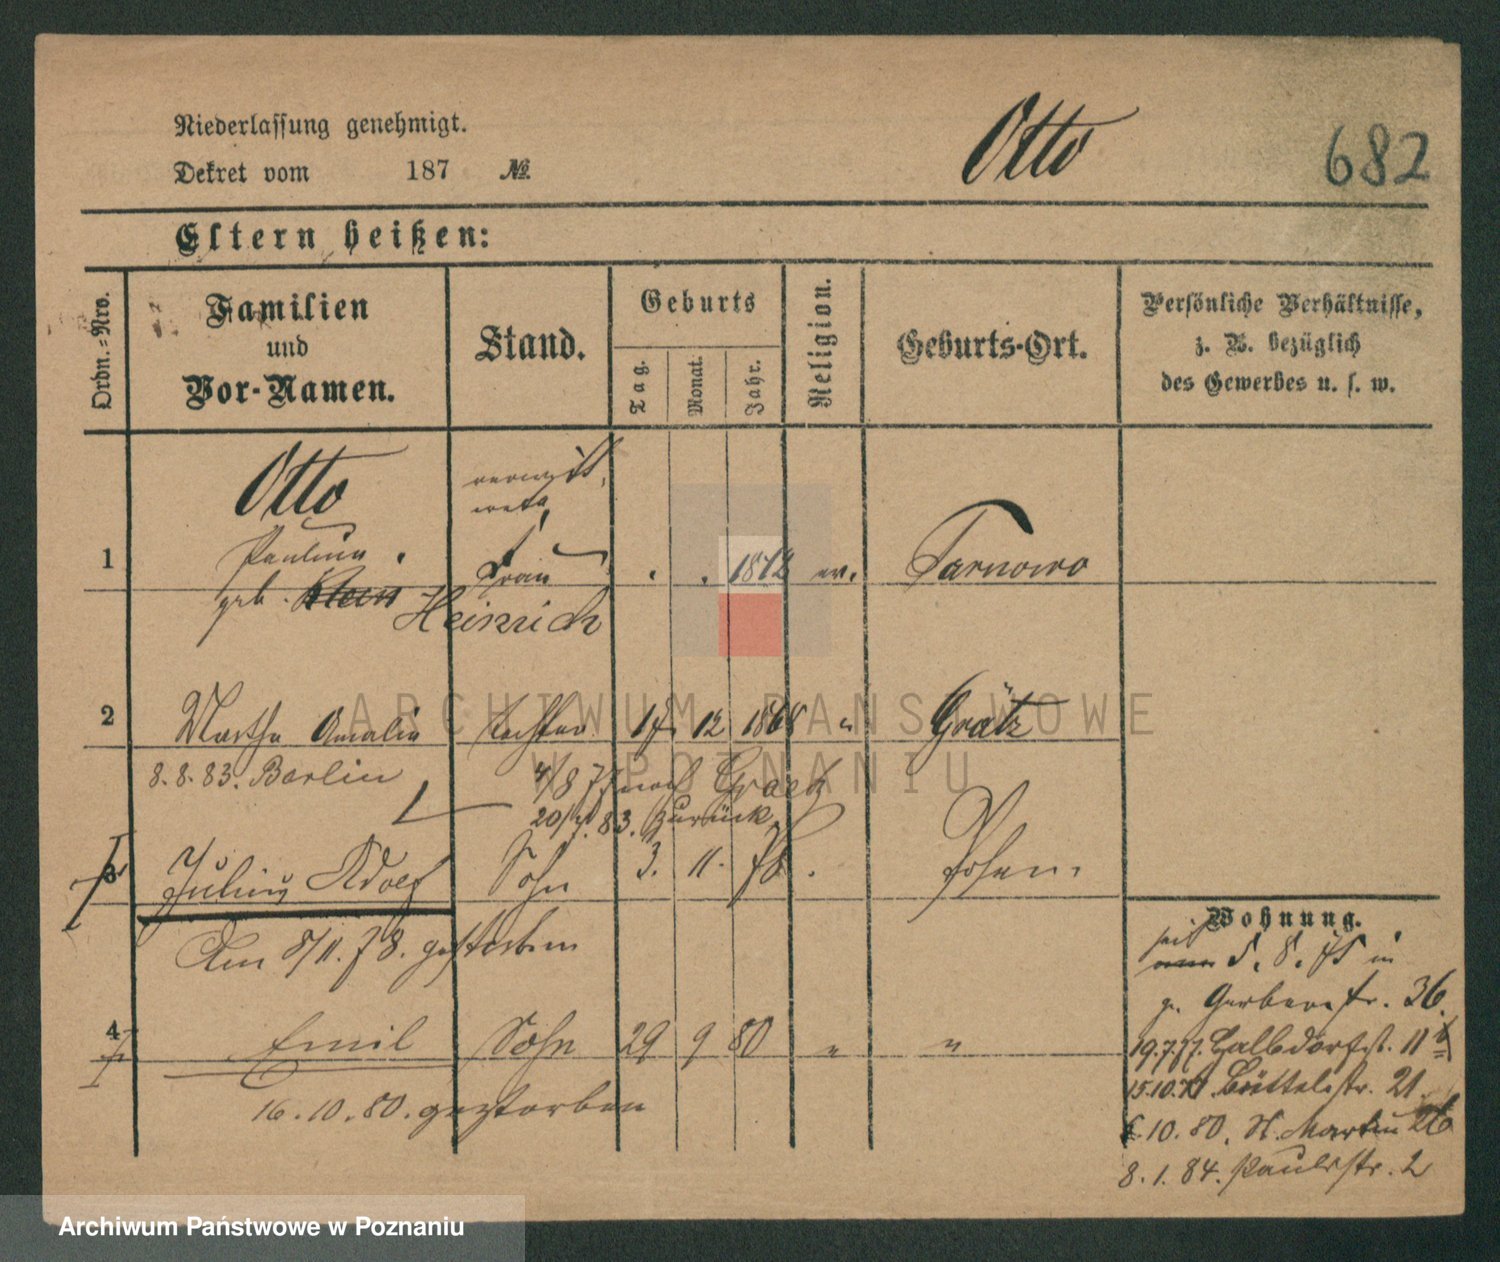 Niederlassung genehmigt.
Dekret vom 187 №
Otto
682
Eltern heißen:
Ordn.=Nro.
Familien
und
Vor-Namen.
Stand.
Geburts
Tag.
Monat.
Jahr.
Religion.
Geburts-Ort.
Persönliche Verhältnisse,
z. B. bezüglich
des Gewerbes u. s. w.
Otto
1
Frau
ev.
Tarnowo
geb. Klein Heinrich
2
Martha Amalie
Tochter
17. 12 1868 "
Grätz
8.8.83. Berlin
4/8 77 nach Graetz
20/7. 83. zurück
3
Julius Adolf
Sohn
3. 11. 78.
Posen.
Am 8/11. 78. gestorben
4
Emil
Sohn
29 9 80 " "
16.10.80. gestorben
Wohnung.
seit
5. 8. 75 in
gr. Gerberstr. 36.
19.7.77. Halbdorfst. 11
15.10. Büttelstr. 21.
10. 80. St. Martin 26
8. 1. 84. Paulistr. 2
ARCHIWUM PAŃSTWOWE
W POZNANIU
Archiwum Państwowe w Poznaniu